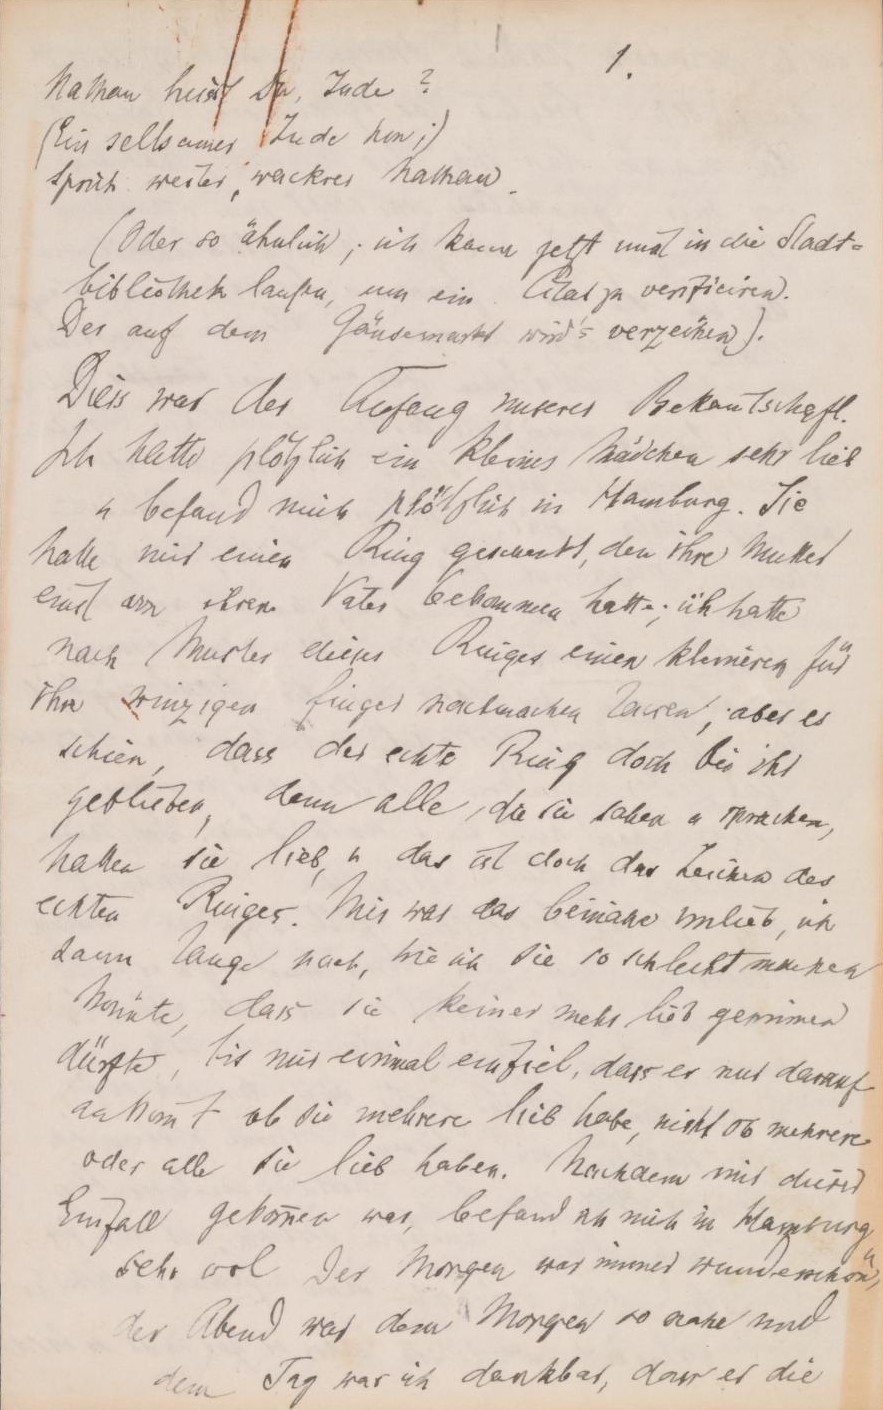 1.
Nathan heisst Du, Jude?
(Ein seltsamer Jude hm;)
Sprich weiter, wackrer Nathan.
(Oder so ähnlich, ich kann jetzt nicht in die Stadt=
bibliothek laufen, um ein Citat zu verificiren.
Der auf dem Gänsemarkt wird's verzeihen).
Diess war der Anfang unserer Bekanntschaft.
Ich hatte plötzlich ein kleines Mädchen sehr lieb
u befand mich plötzlich in Hamburg. Sie
hatte mir einen Ring geschenkt, den ihre Mutter
einst von ihrem Vater bekommen hatte; ich hatte
nach Muster dieses Ringes einen kleineren für
ihre winzigen Finger nachmachen lassen, aber es
schien, dass der echte Ring doch bei ihr
geblieben, denn alle, die sie sahen u sprachen,
hatten sie lieb, u das ist doch das Zeichen des
echten Ringes. Mir war das beinahe unlieb, ich
sann lange nach, wie ich sie so schlecht machen
könnte, dass sie keiner mehr lieb gewinnen
dürfte, bis mir einmal einfiel, dass es nur darauf
ankomt ob sie mehrere lieb habe, nicht ob mehrere
oder alle sie lieb haben. Nachdem mir dieser
Einfall gekommen war, befand ich mich in Hamburg
sehr wol Der Morgen war immer wunderschön,
der Abend war dem Morgen so nahe und
dem Tag war ich dankbar, dass er die